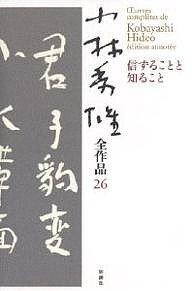 Œuvres complètes de
Kobayashi Hideo
édition annotée
信ずることと
知ること
小林秀雄
全作品
26
君子豹変
小人革面
新潮社